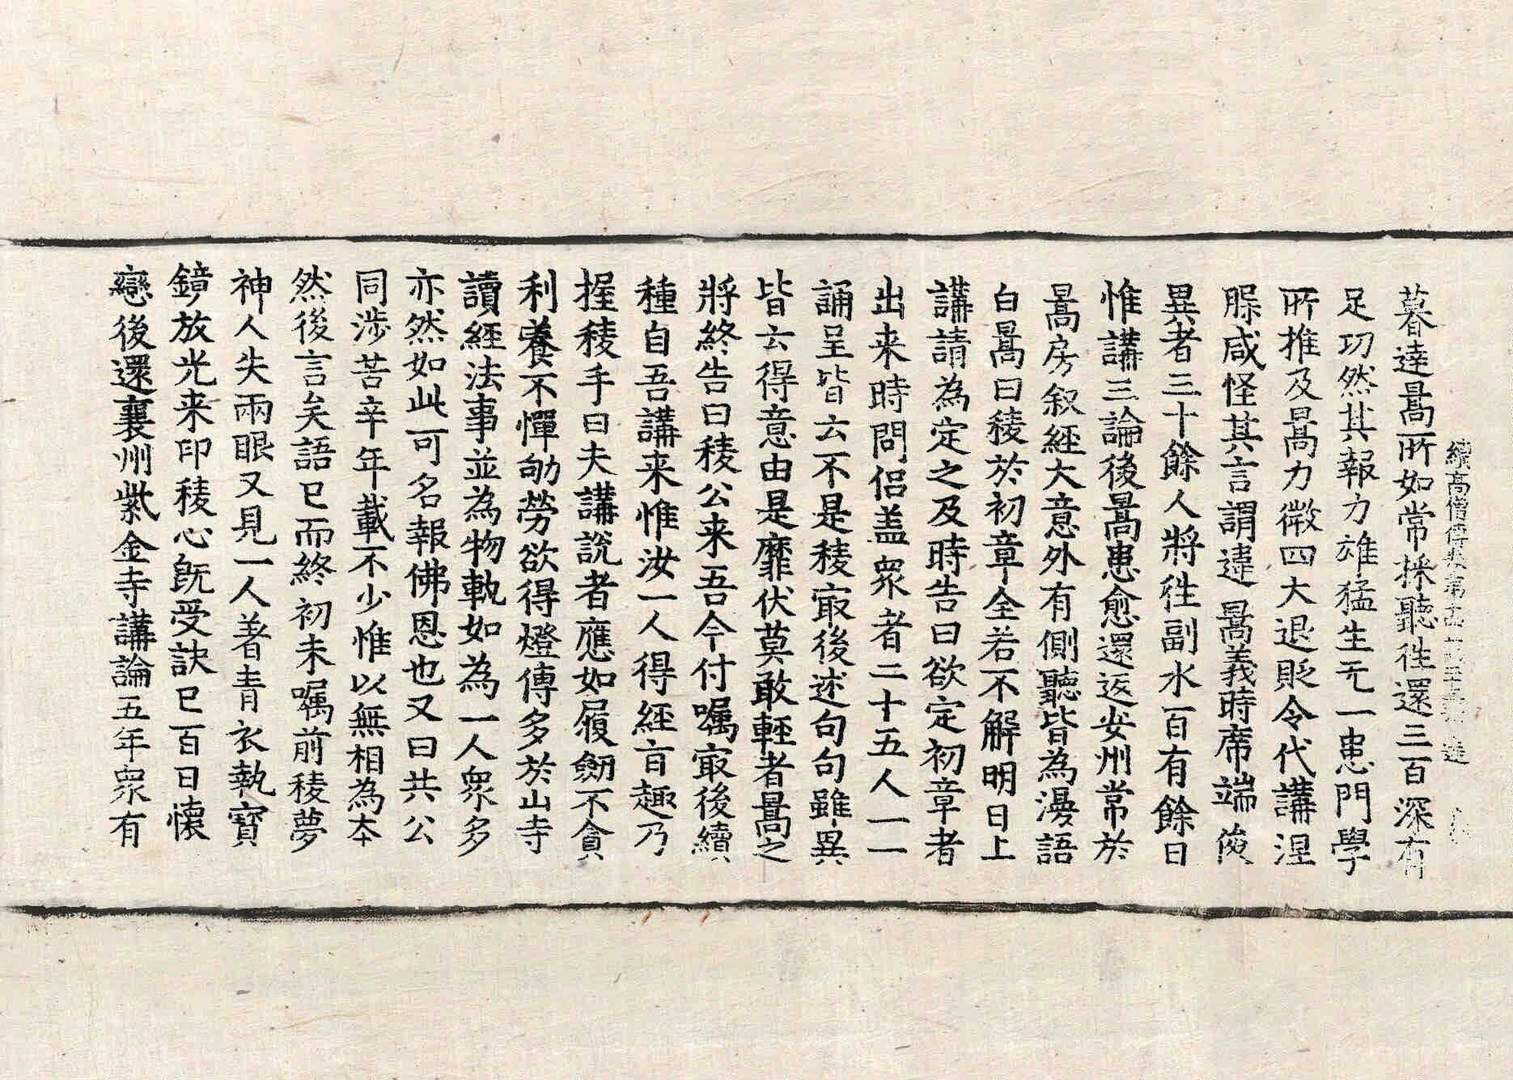 暮達暠所如常採聽往還三百深有
足功然其報力雄猛生无一患門學
所推及暠力微四大退貶令代講涅
脲咸怪其言謂違暠義時席端俊
異者三十餘人將往副水百有餘日
惟講三論後暠患愈還返安州常於
暠房叙經大意外有側聽皆為漫語
白暠曰稜於初章全若不解明日上
講請為定之及時告曰欲定初章者
出来時問侶盖衆者二十五人一一
誦呈皆云不是稜冣後述句句雖異
皆云得意由是靡伏莫敢輕者暠之
將終告曰稜公来吾今付囑冣後續
種自吾講来惟汝一人得經盲趣乃
握稜手曰夫講說者應如履劒不貪
利養不憚劬勞欲得燈傳多於山寺
讀經法事並為物軌如為一人衆多
亦然如此可名報佛恩也又曰共公
同涉苦辛年載不少惟以無相為夲
然後言矣語已而終初未囑前稜夢
神人失兩眼又見一人著青衣執寳
鏡放光来印稜心旣受訣已百日懷
戀後還襄州紫金寺講論五年衆有
續高僧傳卷第